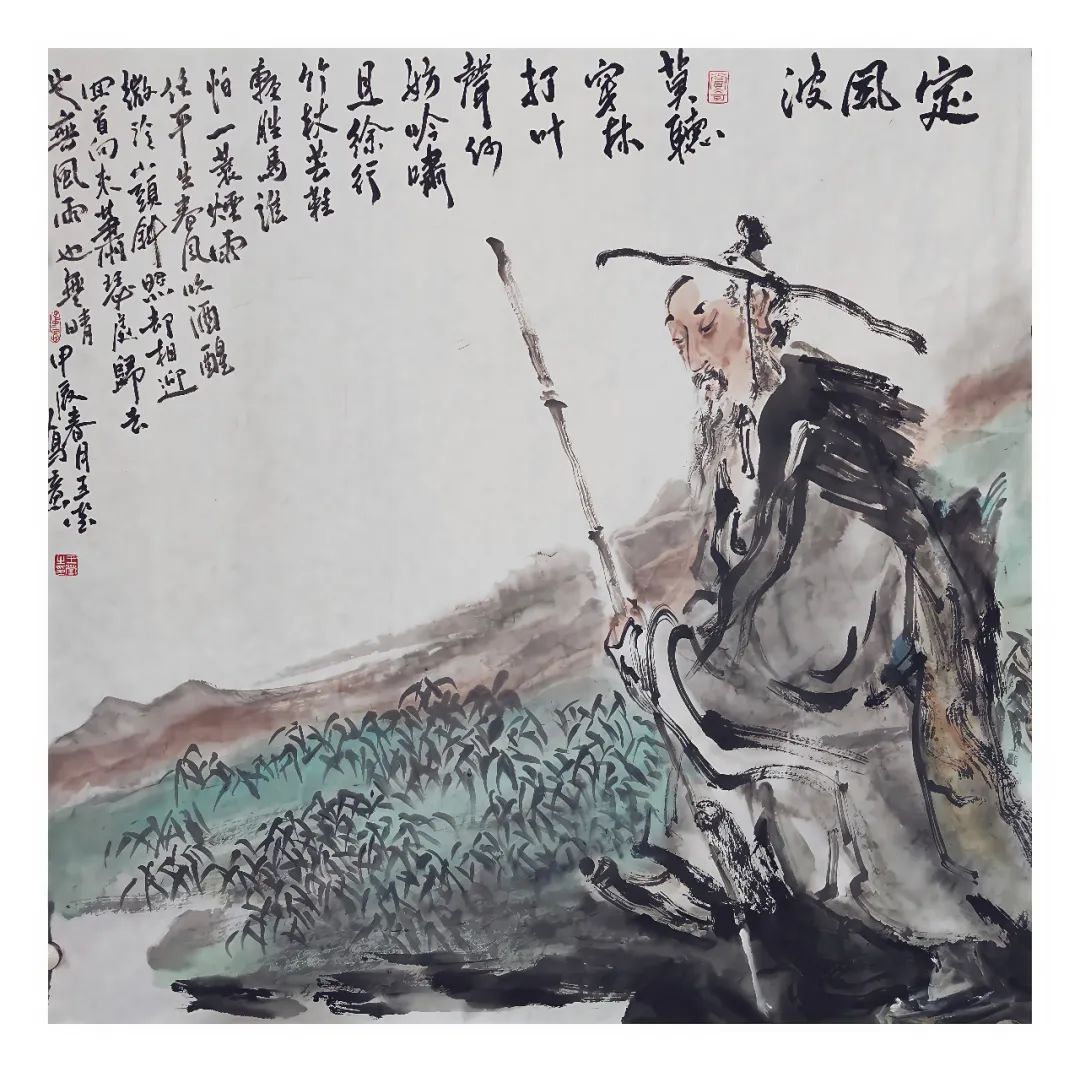 定風波
莫聽
穿林
打叶
聲何
妨吟嘯
且徐行
竹杖芒鞋
輕胜馬誰
怕一蓑煙雨
任平生春风吹酒醒
微冷山頭斜照却相迎
回首向来蕭瑟處歸去
也無風雨也無晴甲辰春月王
寫意